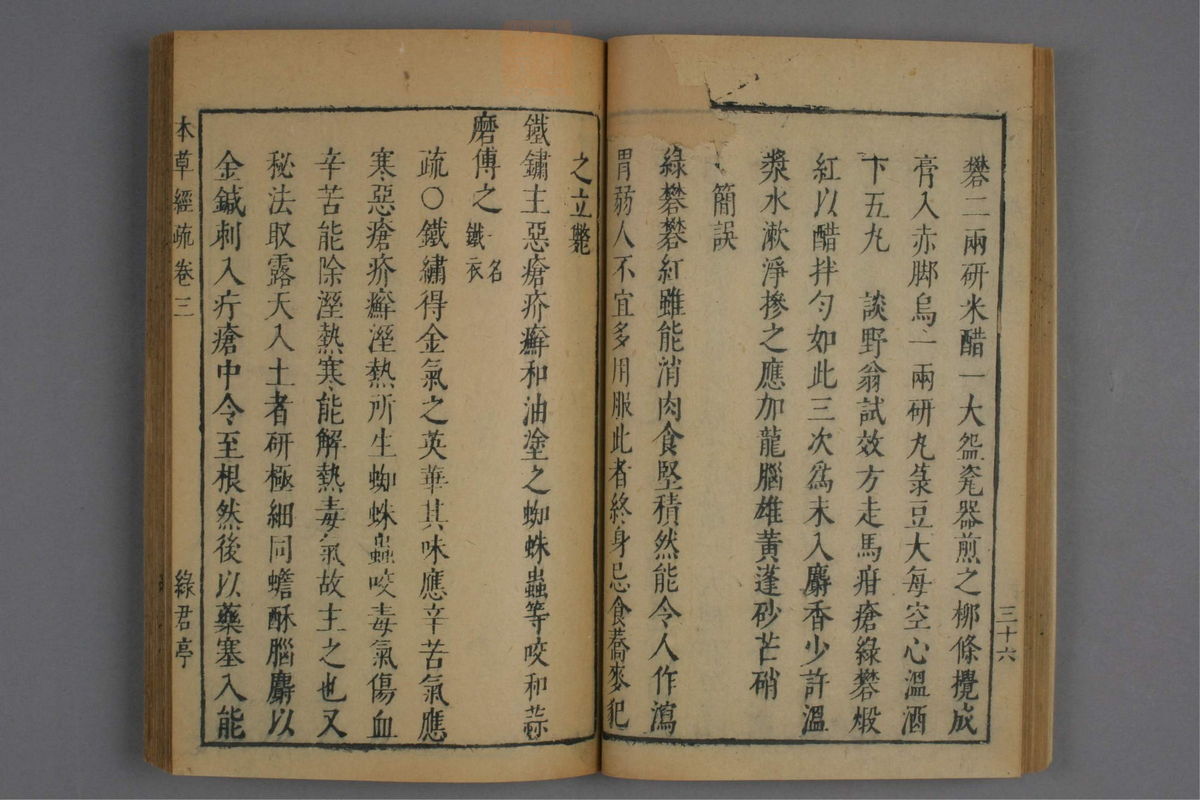 礬二兩研米醋一大盌瓷器煎之柳條攪成
膏入赤脚烏一兩研丸菉豆大每空心溫酒
下五丸　談野翁試效方走馬疳瘡綠礬煅
紅以醋拌勻如此三次爲末入麝香少許溫
漿水漱淨摻之應加龍腦雄黃蓬砂芒硝
簡誤
綠礬礬紅雖能消肉食堅積然能令人作瀉
胃弱人不宜多用服此者終身忌食蕎麥犯
之立斃
三十六
鐵鏽主惡瘡疥癬和油塗之蜘蛛蟲等咬和蒜
磨傅之一名鐵衣
疏〇鐵繡得金氣之英華其味應辛苦氣應
寒惡瘡疥癬溼熱所生蜘蛛蟲咬毒氣傷血
辛苦能除溼熱寒能解熱毒氣故主之也又
秘法取露天入土者研極細同蟾酥腦麝以
金鍼刺入疔瘡中令至根然後以藥塞入能
本草經疏卷三
綠君亭